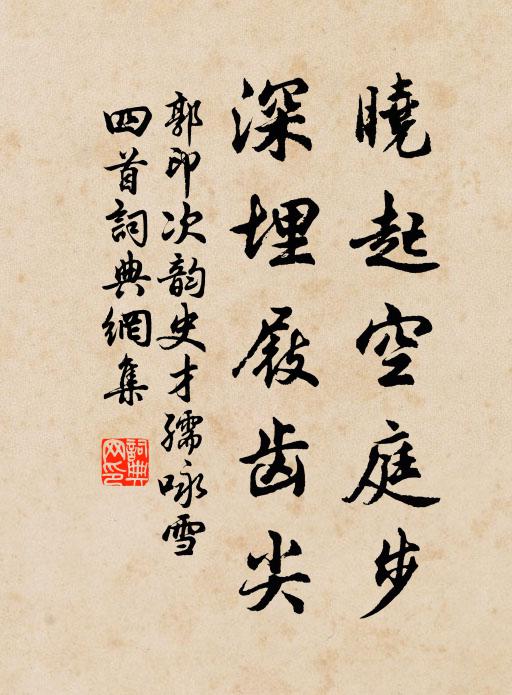 曉起空庭步
深埋屐齿尖
郭印次韵史才孺咏雪
四首詞典網集
詞典网印